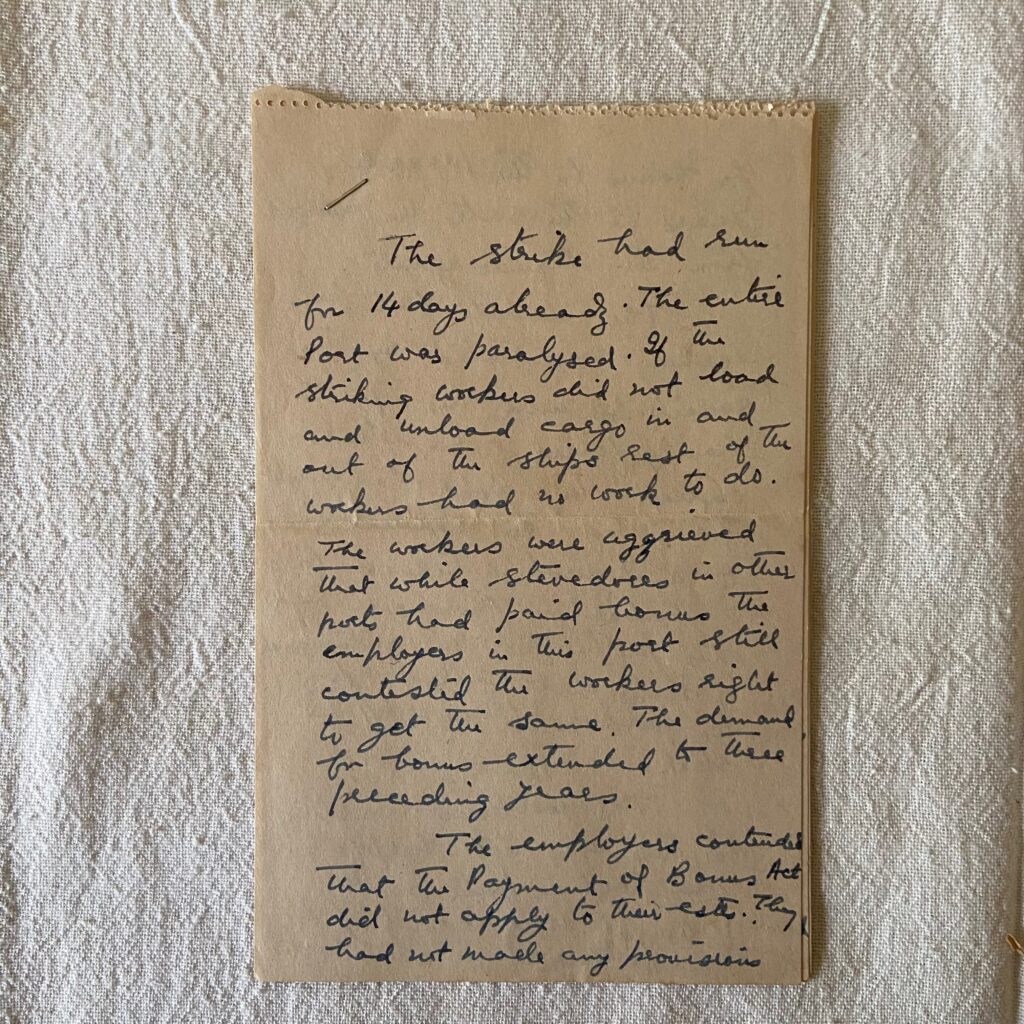 The strike had run
for 14 days already. The entire
Port was paralysed. If the
striking workers did not load
and unload cargo in and
out of the ships rest of the
workers had no work to do.
The workers were aggrieved
that while stevedores in other
ports had paid bonus the
employers in this port still
contested the workers right
to get the same. The demand
for bonus extended to three
preceding years.
The employers contended
that the Payment of Bonus Act
did not apply to their estts. They
had not made any provisions